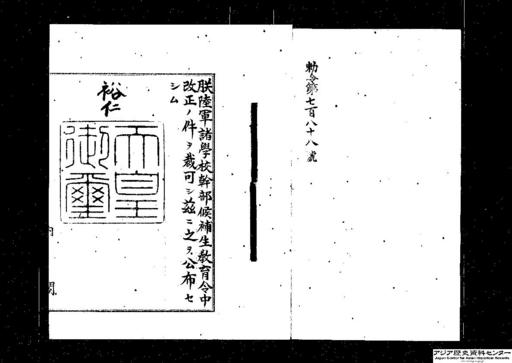 勅令第七百八十八號
朕陸軍諸學校幹部候補生教育令中
改正ノ件ヲ裁可シ茲ニ之ヲ公布セ
シム
裕仁
天皇
御璽
内
閣
アジア歴史資料センター
Japan Center for Asian Historical Records